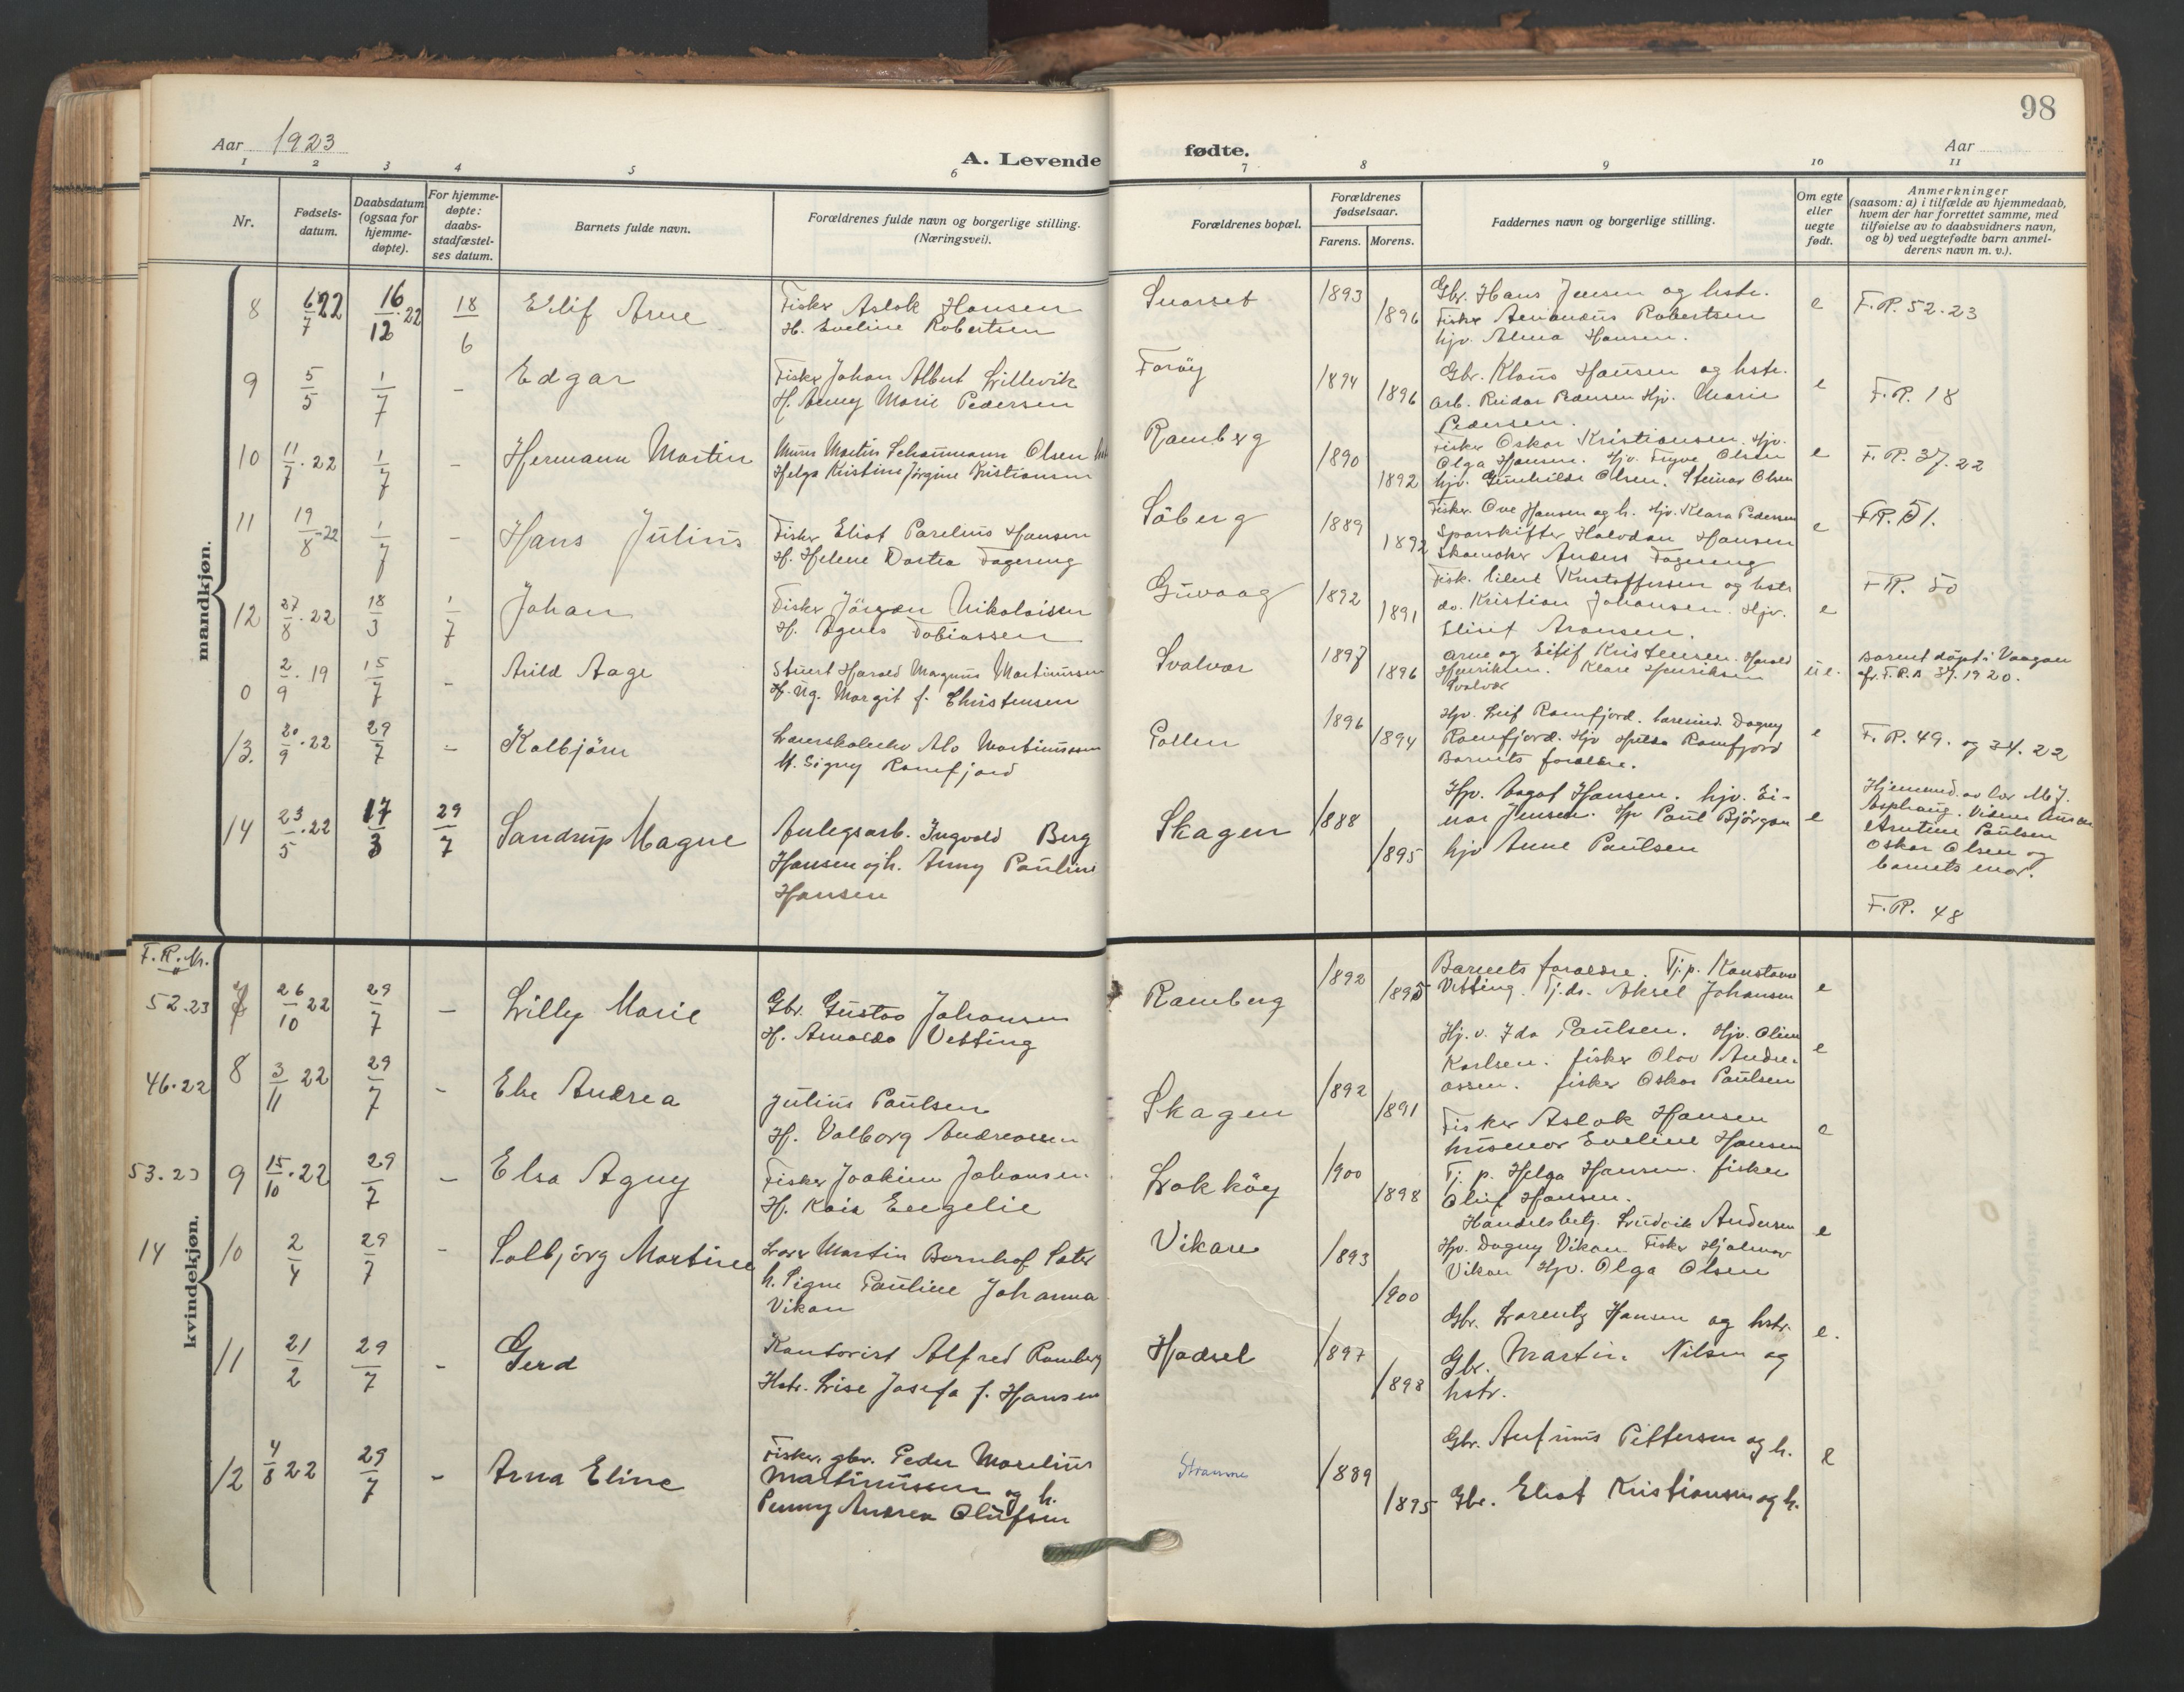 98
Aar 1923
A. Levende fødte.
Aar
1 2 3 4 5 6 7 8 9 10 11
Nr.
Fødsels-
datum.
Daabsdatum
(ogsaa for
hjemme-
døpte).
For hjemme-
døpte:
daabs-
stadfæstel-
ses datum.
Barnets fulde navn.
Forældrenes fulde navn og borgerlige stilling.
(Næringsvei).
Forældrenes bopæl.
Forældrenes
fødselsaar.
Farens. Morens.
Faddernes navn og borgerlige stilling.
Om egte
eller
uegte
født.
Anmerkninger
(saasom: a) i tilfælde av hjemmedaab,
hvem der har forrettet samme, med
tilføielse av to daabsvidners navn,
og b) ved uegtefødte barn anmel-
derens navn m. v.).
mandkjøn.
8 6/7 22 16/12 22 18/6 Eilif Arne
Fisker Aslak Hansen
H. Eveline Robertsen
1893 1896
Gbr. Hans Jensen og hstr.
Fisker Amandus Robertsen
hjv. Alma Hansen.
e F.R. 52.23
9 5/5 1/7 - Edgar
Fisker Johan Albert Lillevik
H. Marie Pedersen
Forøy 1894 1896
Gbr. Klaus Hansen og hstr.
Arb. Reidar Pedersen Hjv. Marie
Pedersen.
e F.R. 18
10 11/7.22 1/7 - Hermann Martin
Murer Martin Schaumann Olsen
Helga Kristine Jørgine Kristiansen
Ramberg 1890 1892
Fisker Oskar Kristiansen. Hjv.
Olga Hansen. Hjv. Olsen
hjv. Gunhilde Olsen. Steinar Olsen
e F.R. 37.22
11 19/8 22 1/7 - Hans Julius
Fisker Eliot Parelius Hansen
H. Helene Dortea Fagereng
Søberg 1889 1892
Fisker Ove Hansen og h. Hjv. Klara Pedersen
Sporskifter Halvdan Hansen
Skomaker Anders Fagereng
e F.R. 51.
12 27/8.22 18/3 1/7 Johan
Fisker Jørgen Nikolaisen
H. Agnes Tobiassen
Guvaag 1892 1891
Fisk. Eilert Kristoffersen og hstr
do. Kristian Johansen. Hjv.
Elisif Aronsen.
e F.R. 50
0 2/9.19 15/7 - Arild Aage
Stuert Harald Magnus Martinussen
H. Ug. Margit f. Christensen
Svolvær 1897 1896
Arne og Eilif Kristensen. Harald
Henriksen. Klare Henriksen
Svolvær
ue. Barnet døpt i Vaagan
cfr. F.R. A 37. 1920.
13. 20/9.22 29/7 - Kolbjørn
Martinussen
H. Signy Ramfjord
Pollen 1896 1894
Hjv. Leif Ramfjord. Dagny
Ramfjord. Hjv Hilda Ramfjord
Barnets forældre.
e F.R. 49. og 34.22
14 23/5.22 17/3 29/7 Sandrup Magne
Anlegsarb. Ingvald Berg
Hansen og h. Anny Pauline
Hansen
Skagen 1888 1895
Hjv. Aagot Hansen. hjv. Ei-
nar Jensen. Hjv Paul Bjørgan
hjv Anne Paulsen
e Hjemmed. av lær M.J.
Asphaug. Vidner
Arntine Paulsen
Oskar Olsen og
barnets mor.
F.R. 48
F.R. Nr.
kvindekjøn.
52.23 7 26/10 22 29/7 - Lilly Marie
Gbr. Gustav Johansen
H. Arnolda Vetting
Ramberg 1892 1895
Barnets forældre. Tj.p. Konstanse
Vetting. Tj.do. Aksel Johansen
e
46.22 8 3/11 22 29/7 - Else Andrea
Julius Paulsen
H. Valborg Andreassen
Skagen 1892 1891
Hj.v. Ida Paulsen. Hjv. Oline
Karlsen. fisker Olav Andre-
assen. fisker Oskar Paulsen
e
53.23 9 15/10.22 29/7 - Elsa Agny
Fisker Joakim Johansen.
H. Kaia Engelie
1900 1898
Fisker Aslak Hansen
husmor Eveline Hansen
Tj. p. Helga Hansen. fisker
Oluf Hansen.
e
14 10 2/4 29/7 - Solbjørg Martine
Martin Bernhof Sæter
h. Signe Pauline Johanna
Vikan
Vikan 1893 1900
Handelsbetj. Ludvik Andersen
Hjv. Dagny Vikan Fisker Hjalmar
Vikan Hjv. Olga Olsen
e
11 21/2 29/7 - Gerd
Kontorist Alfred Ramberg
Hstr. Lise Josefa f. Hansen
Hadsel 1897 1898
Gbr. Lorentz Hansen og hstr.
Gbr. Martin Nilsen og
hstr.
e.
12 4/8 22 29/7 - Arna Eline
Fisker, gbr. Peder Marelius
Martinussen og h.
Penny Andrea Olufsen
Straumen 1889 1895
Gbr. Anfinus Pettersen og h.
Gbr. Eliot Kristiansen og h.
e